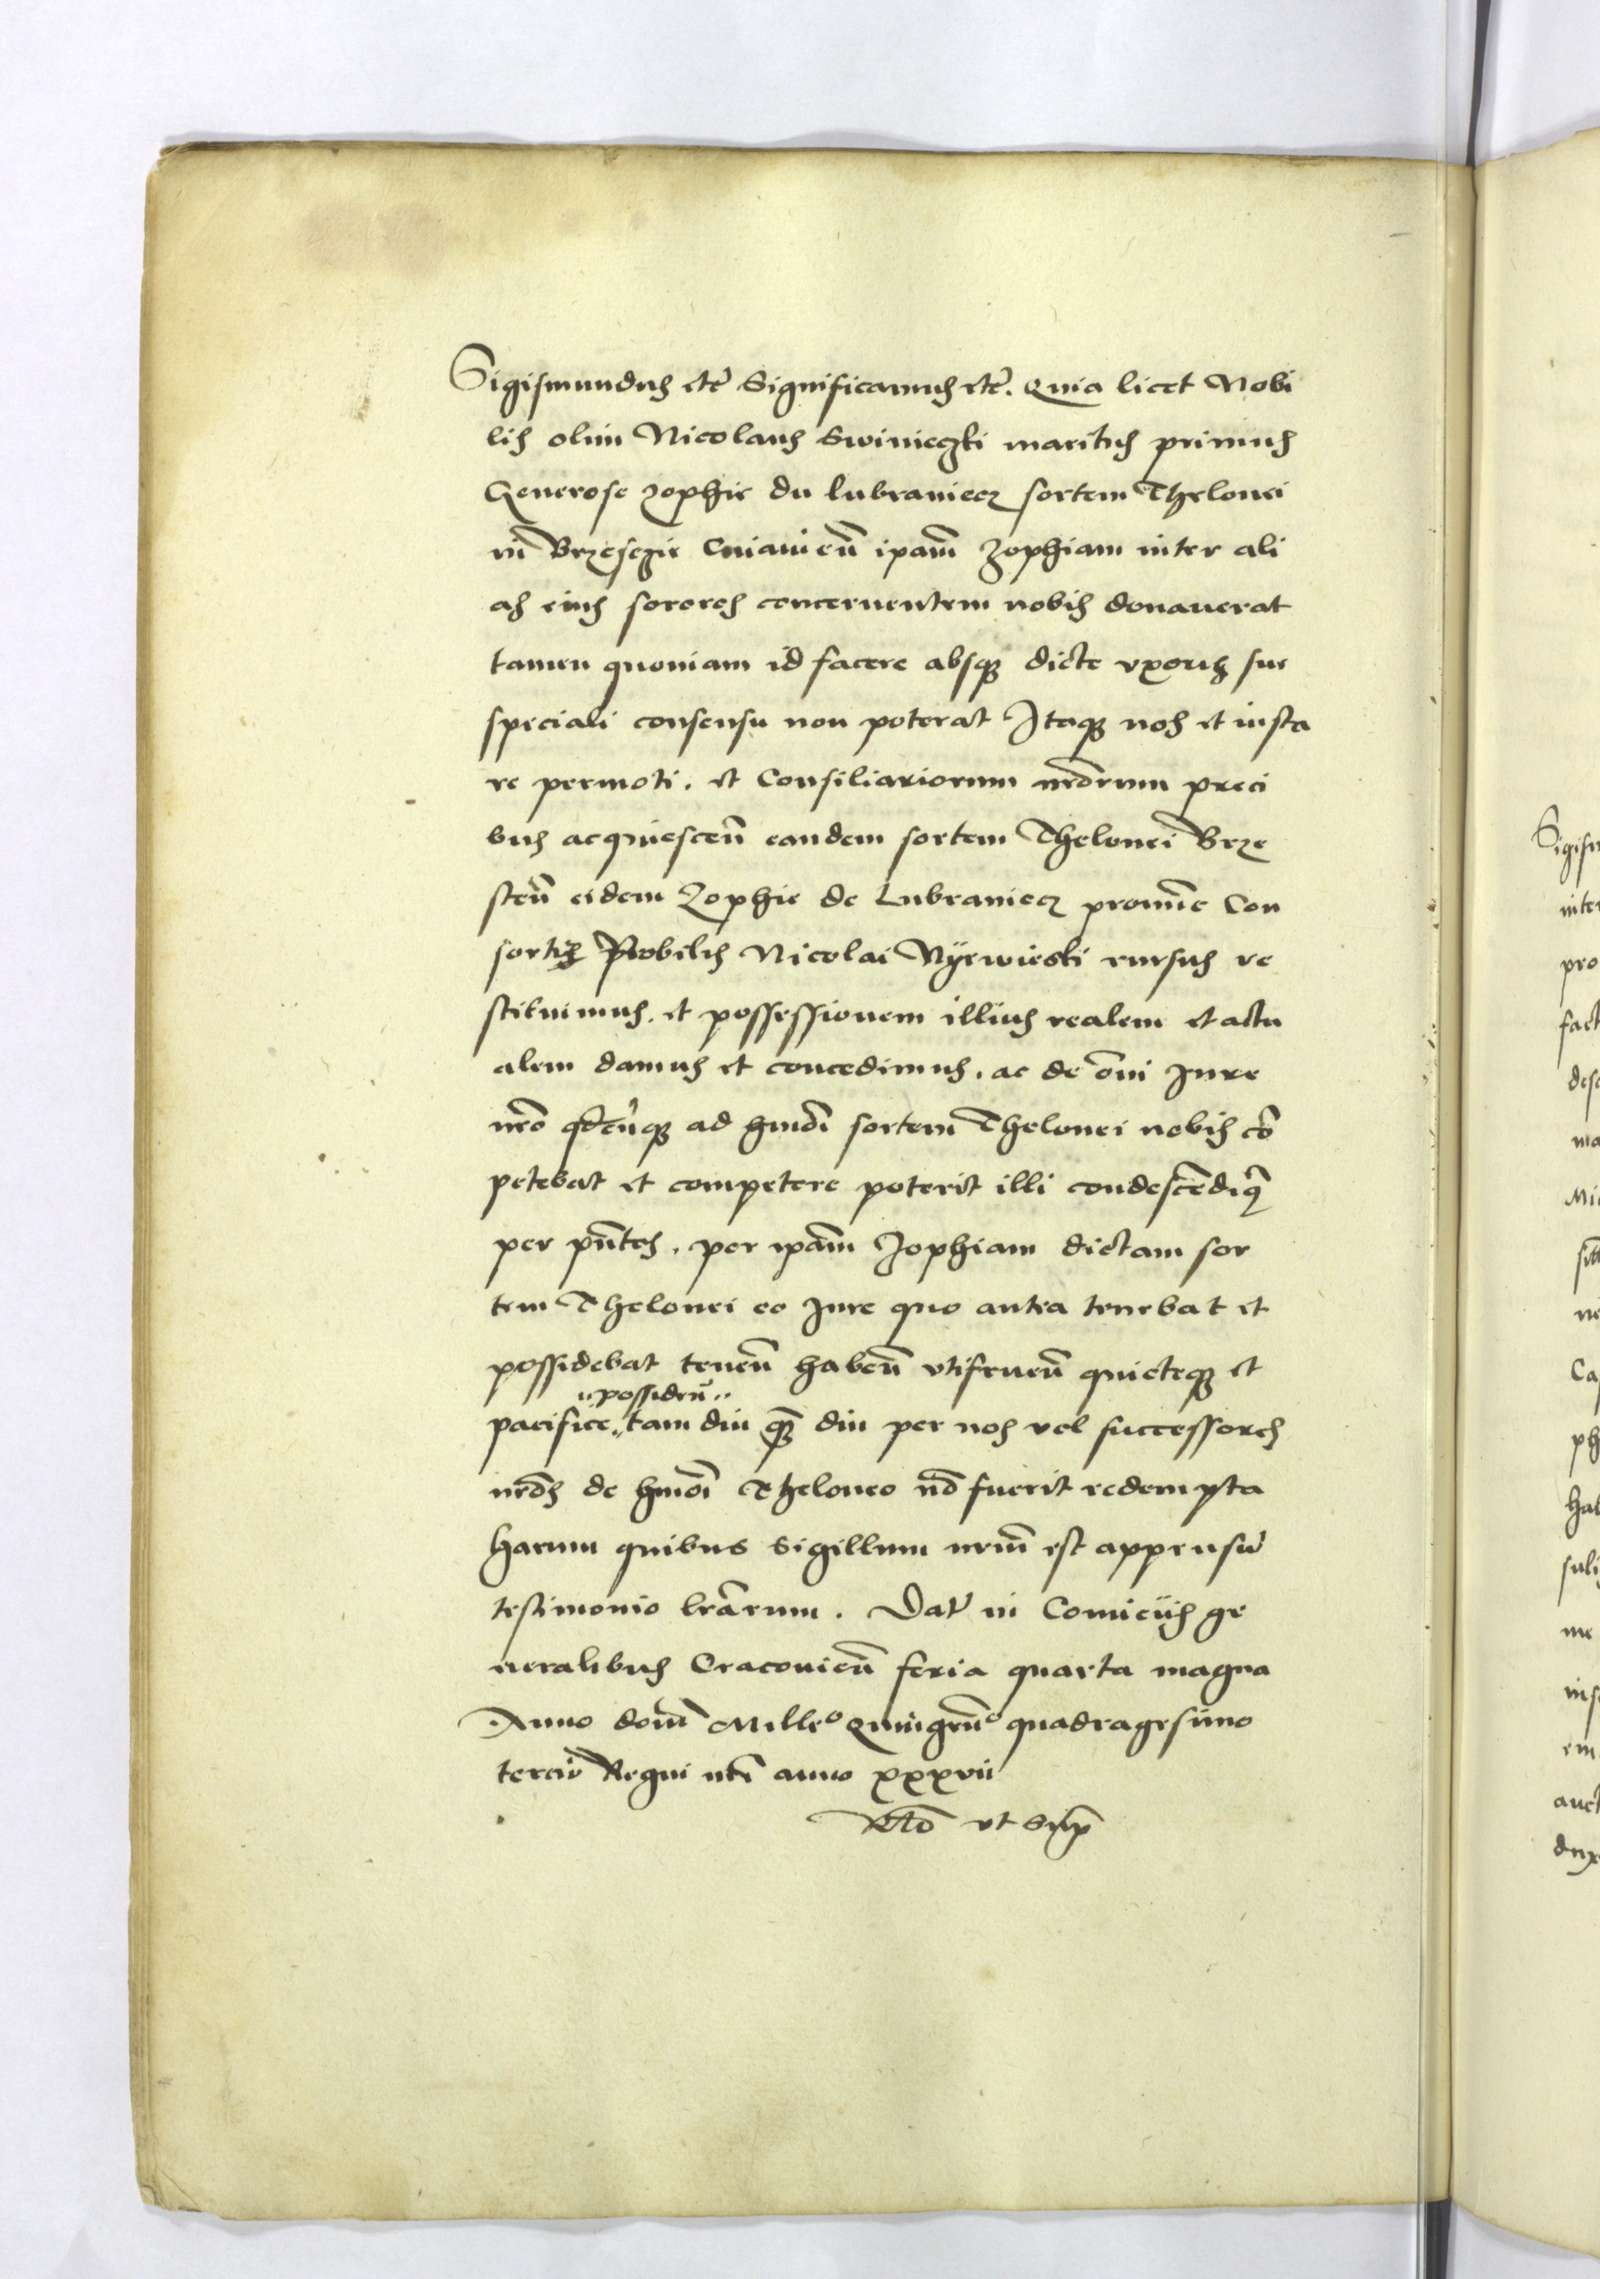 Sigismundus etc̃ Significamus etc̃. Quia licet Nobi
lis olim Nicolaus Swiniczki maritus primus
Generose Zophie du lubraniecz sortem Thelonei
in Brzesczie Cuiauieñ ip̃am Zophiam inter ali
as eius sorores concernentem nobis donauerat
tamen quoniam id facere absq3 dicte vxoris sue
speciali consensu non poterat Itaq3 nos et iusta
re permoti. et Consiliariorum nr̃orum preci
bus acquiesceñ eandem sortem Thelonei Brze
steñ eidem Zophie de Lubraniecz pronũc Con
sortis Nobilis Nicolai Nyewieski rursus re
stituimus. et possessionem illius realem et actu
alem damus et concedimus. ac de õni Jure
nr̃o qdcũq3 ad hmõi sortem Thelonei nobis cõ
petebat et competere poterit illi condescẽdiq
per pñtes. per ip̃am Zophiam dictam sor
tem Thelonei eo Jure quo antea tenebat et
possidebat teneñ habeñ vtifrueñ quieteq3 et
possideñ
pacifice tam diu q̃3 diu per nos vel successores
nr̃os de hmõi Theloneo nõ fuerit redempta
harum quibus Sigillum nr̃m est appensũ
testimonio lr̃arum. Dat̃ in Comiciis ge
neralibus Cracouieñ feria quarta magna
Anno dom̃ Mill̃o Quingeño quadragesimo
tercio Regni nr̃i anno xxxvii
Rl̃o vt Sup̃
Sigism
inter
pro
fact
desc
ma
Mic
Ca
ph
hab
me
ins
em
auct
dux